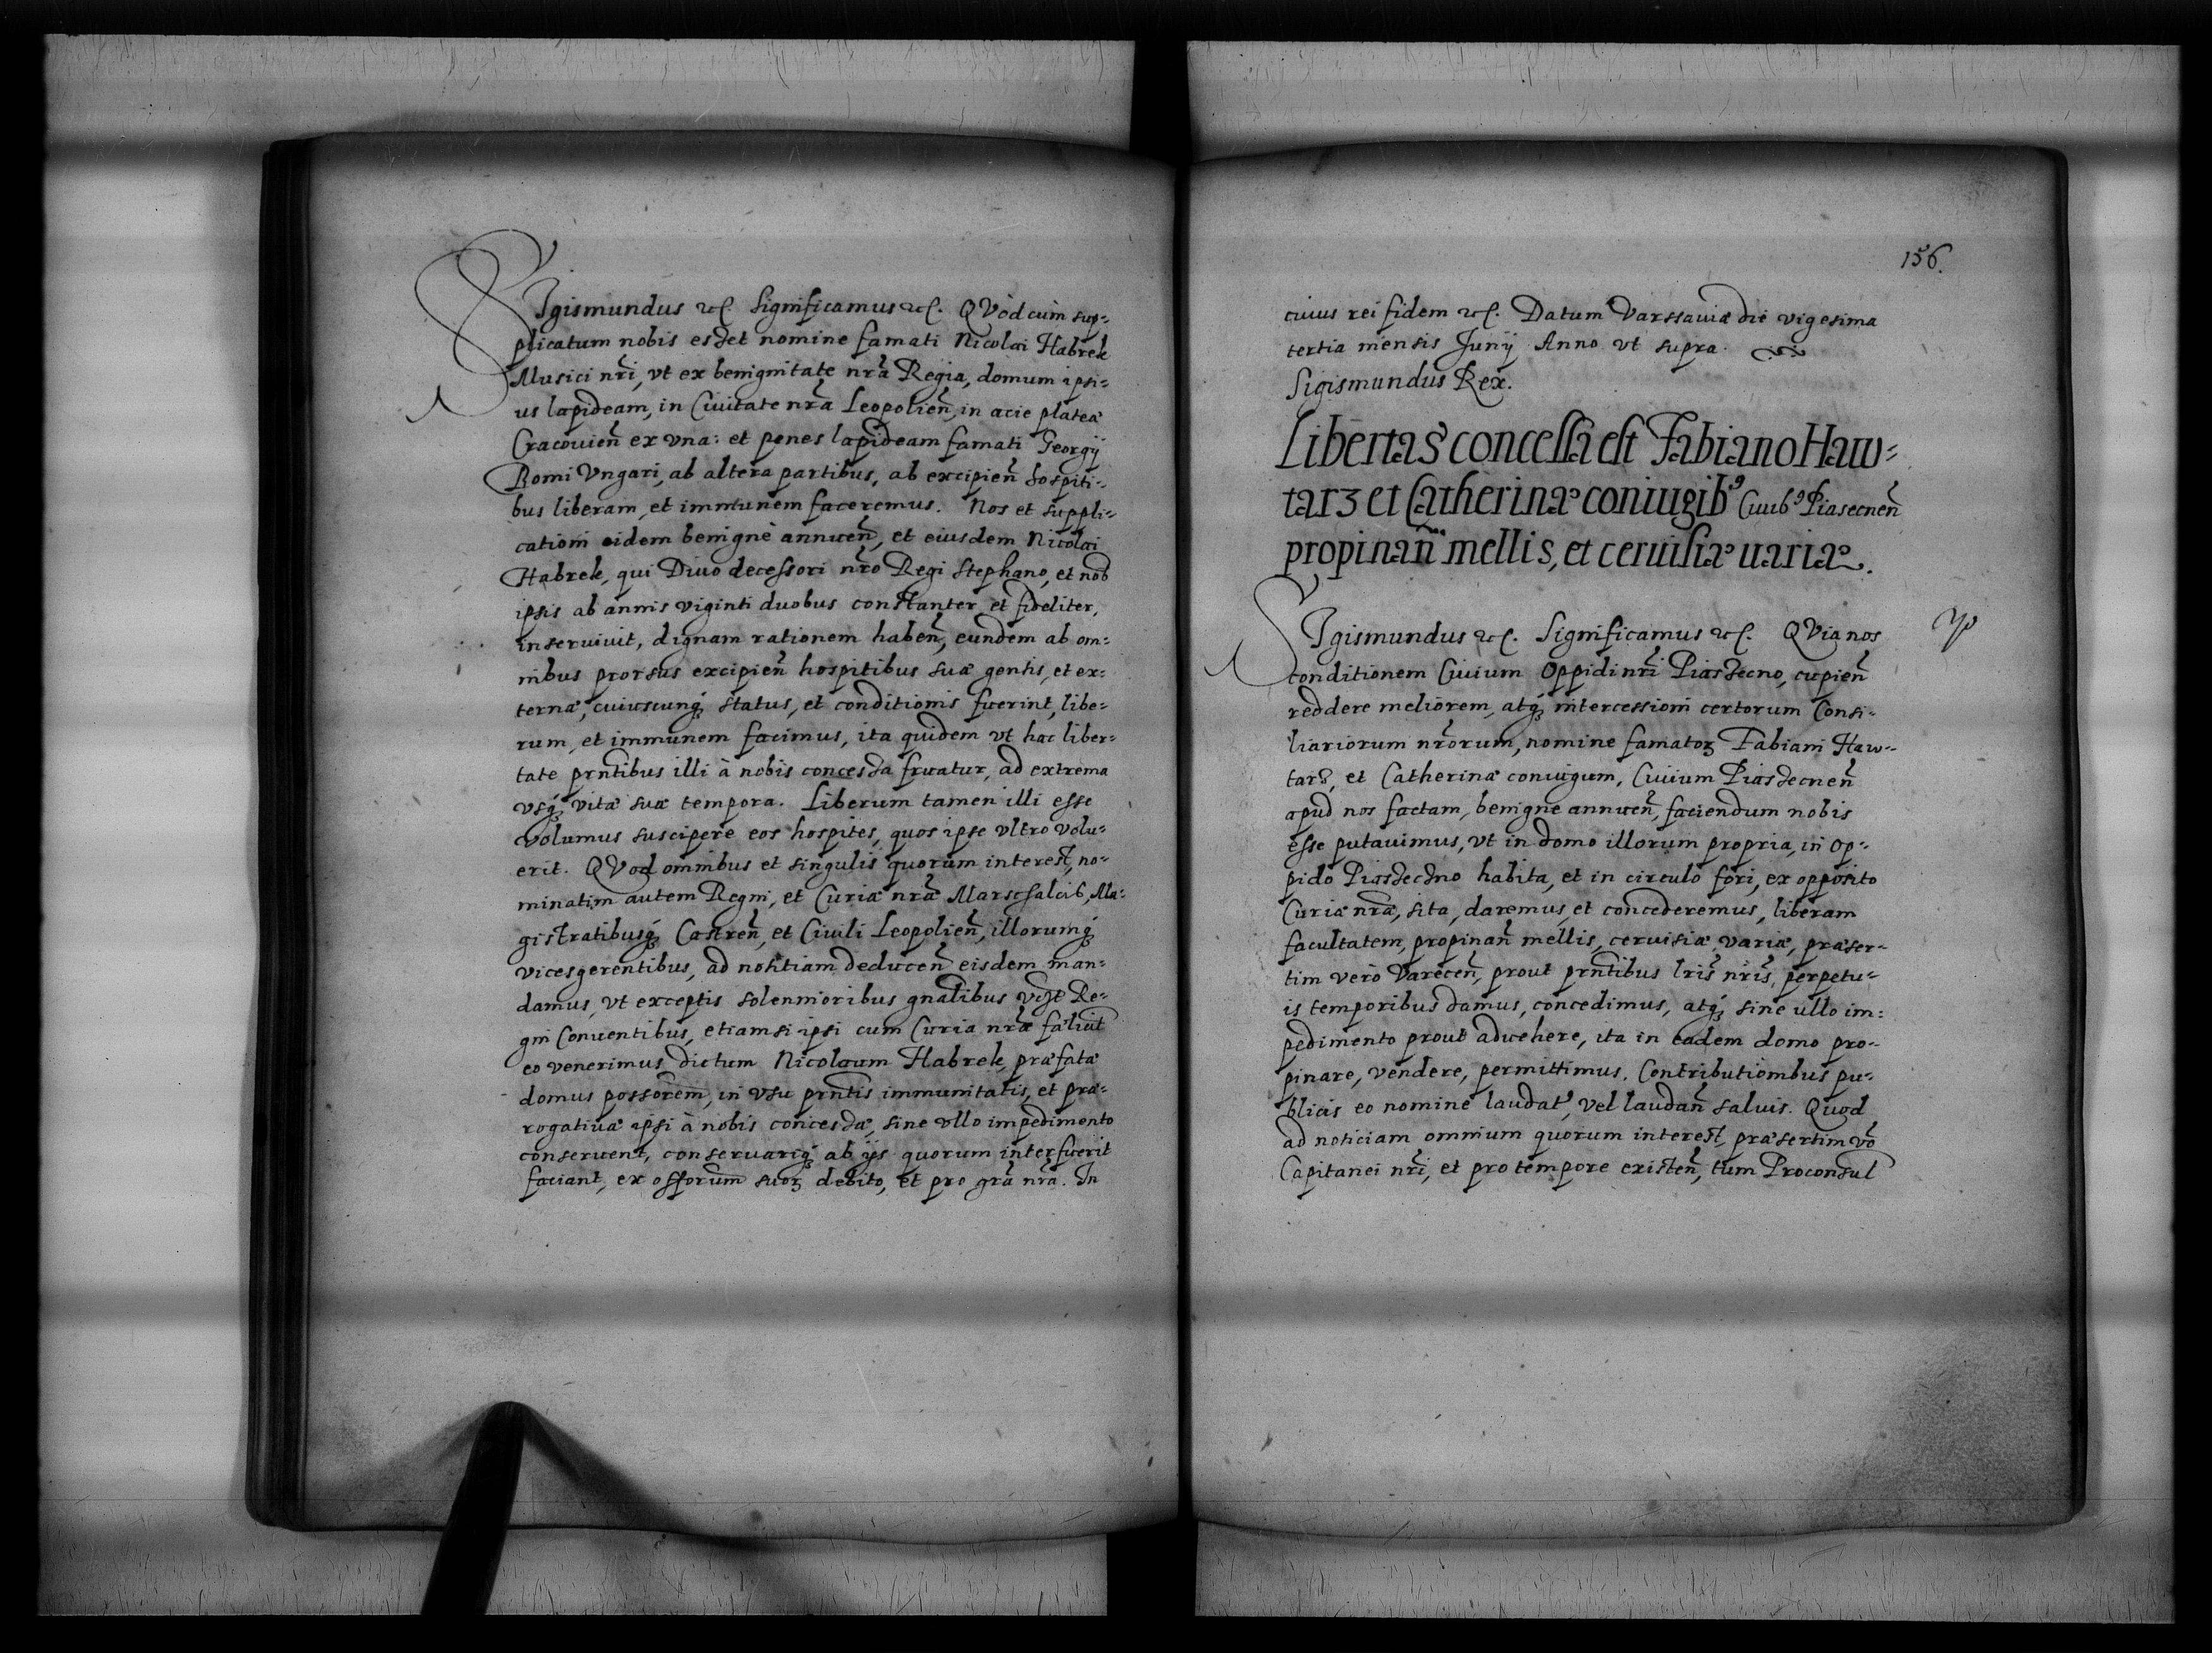 SIgismundus etc. Significamus etc. QVòd cùm sup-
plicatum nobis esset nomine famati Nicolai Habrek
Musici nrĩ, vt ex benignitate nrã Regia, domum ipsi-
us lapideam, in Ciuitate nrã Leopolieñ, in acie plateæ
Cracouieñ ex vna: et penes lapideam famati Georgÿ
Romi Vngari, ab altera partibus, ab excipieñ hospiti-
bus liberam, et immunem faceremus. Nos et suppli-
cationi eidem benignè annueñ, et eiusdem Nicolai
Habrek, qui Diuo decessori nrõ Regi Stephano, et nob
ipsis ab annis viginti duobus constanter, et fideliter,
inseruiuit, dignam rationem habeñ, eundem ab om-
nibus prorsus excipieñ hospitibus suæ gentis, et ex-
ternæ, cuiuscunq₃ status, et conditionis fuerint, libe-
rum, et immunem facimus, ita quidem vt hac liber-
tate prñtibus illi à nobis concessa fruatur, ad extrema
vsq₃ vitæ suæ tempora. Liberum tamen illi esse
volumus suscipere eos hospites, quos ipse vltro volu-
erit. QVod omnibus et singulis quorum interest, no-
minatim autem Regni, et Curiæ nræ̃ Marschalcis, Ma-
gistratibusq₃ Castreñ, et Ciuili Leopolieñ, illorumq₃
vicesgerentibus, ad notitiam deduceñ eisdem man-
damus, vt exceptis solennioribus gnãlibus Re-
gni Conuentibus, etiamsi ipsi cum Curia nrã
eo venerimus, dictum Nicolaum Habrek, præfatæ
domus possorẽm, in vsu prñtis immunitatis, et præ-
rogatiuæ ipsi à nobis concessæ, sine vllo impedimento
conseruent, conseruariq₃ ab ijs quorum interfuerit
faciant, ex offõrum suoꝝ debito, et pro grã nrã. In
156.
cuius rei fidem etc. Datum Varssauiæ die vigesima
tertia mensis Junÿ Anno vt supra.
Sigismundus Rex.
Libertas concessa est Fabiano Haw-
tarz et Catherinæ coniugibꝰ Ciuibꝰ Piasecneñ
propinañ mellis, et ceruisiæ uariæ.
SIgismundus etc. Significamus etc. QVia nos
conditionem Ciuium Oppidi nrĩ Piasecno, cupieñ
reddere meliorem, atq₃ intercessioni certorum Consi-
liariorum nrõrum, nomine famatoꝝ Fabiani Haw-
tarz, et Catherinæ coniugum, Ciuium Piassecneñ
apud nos factam, benigne annueñ, faciendum nobis
esse putauimus, vt in domo illorum propria, in Op-
pido Piassecsno habita, et in circulo fori, ex opposito
Curiæ nræ̃, sita, daremus, et concederemus, liberam
facultatem, propinañ mellis, ceruisiæ, variæ, præser-
tim verò Vareceñ, prout prñtibus lris̃ nris̃, perpetu-
is temporibus damus, concedimus, atq₃ sine ullo im-
pedimento prout aduehere, ita in eadem domo pro-
pinare, vendere, permittimus. Contributionibus pu-
blicis eo nomine laudat, vel laudañ saluis. Quod
ad noticiam omnium quorum interest, præsertim võ
Capitanei nrĩ, et pro tempore existeñ, tum Proconsul